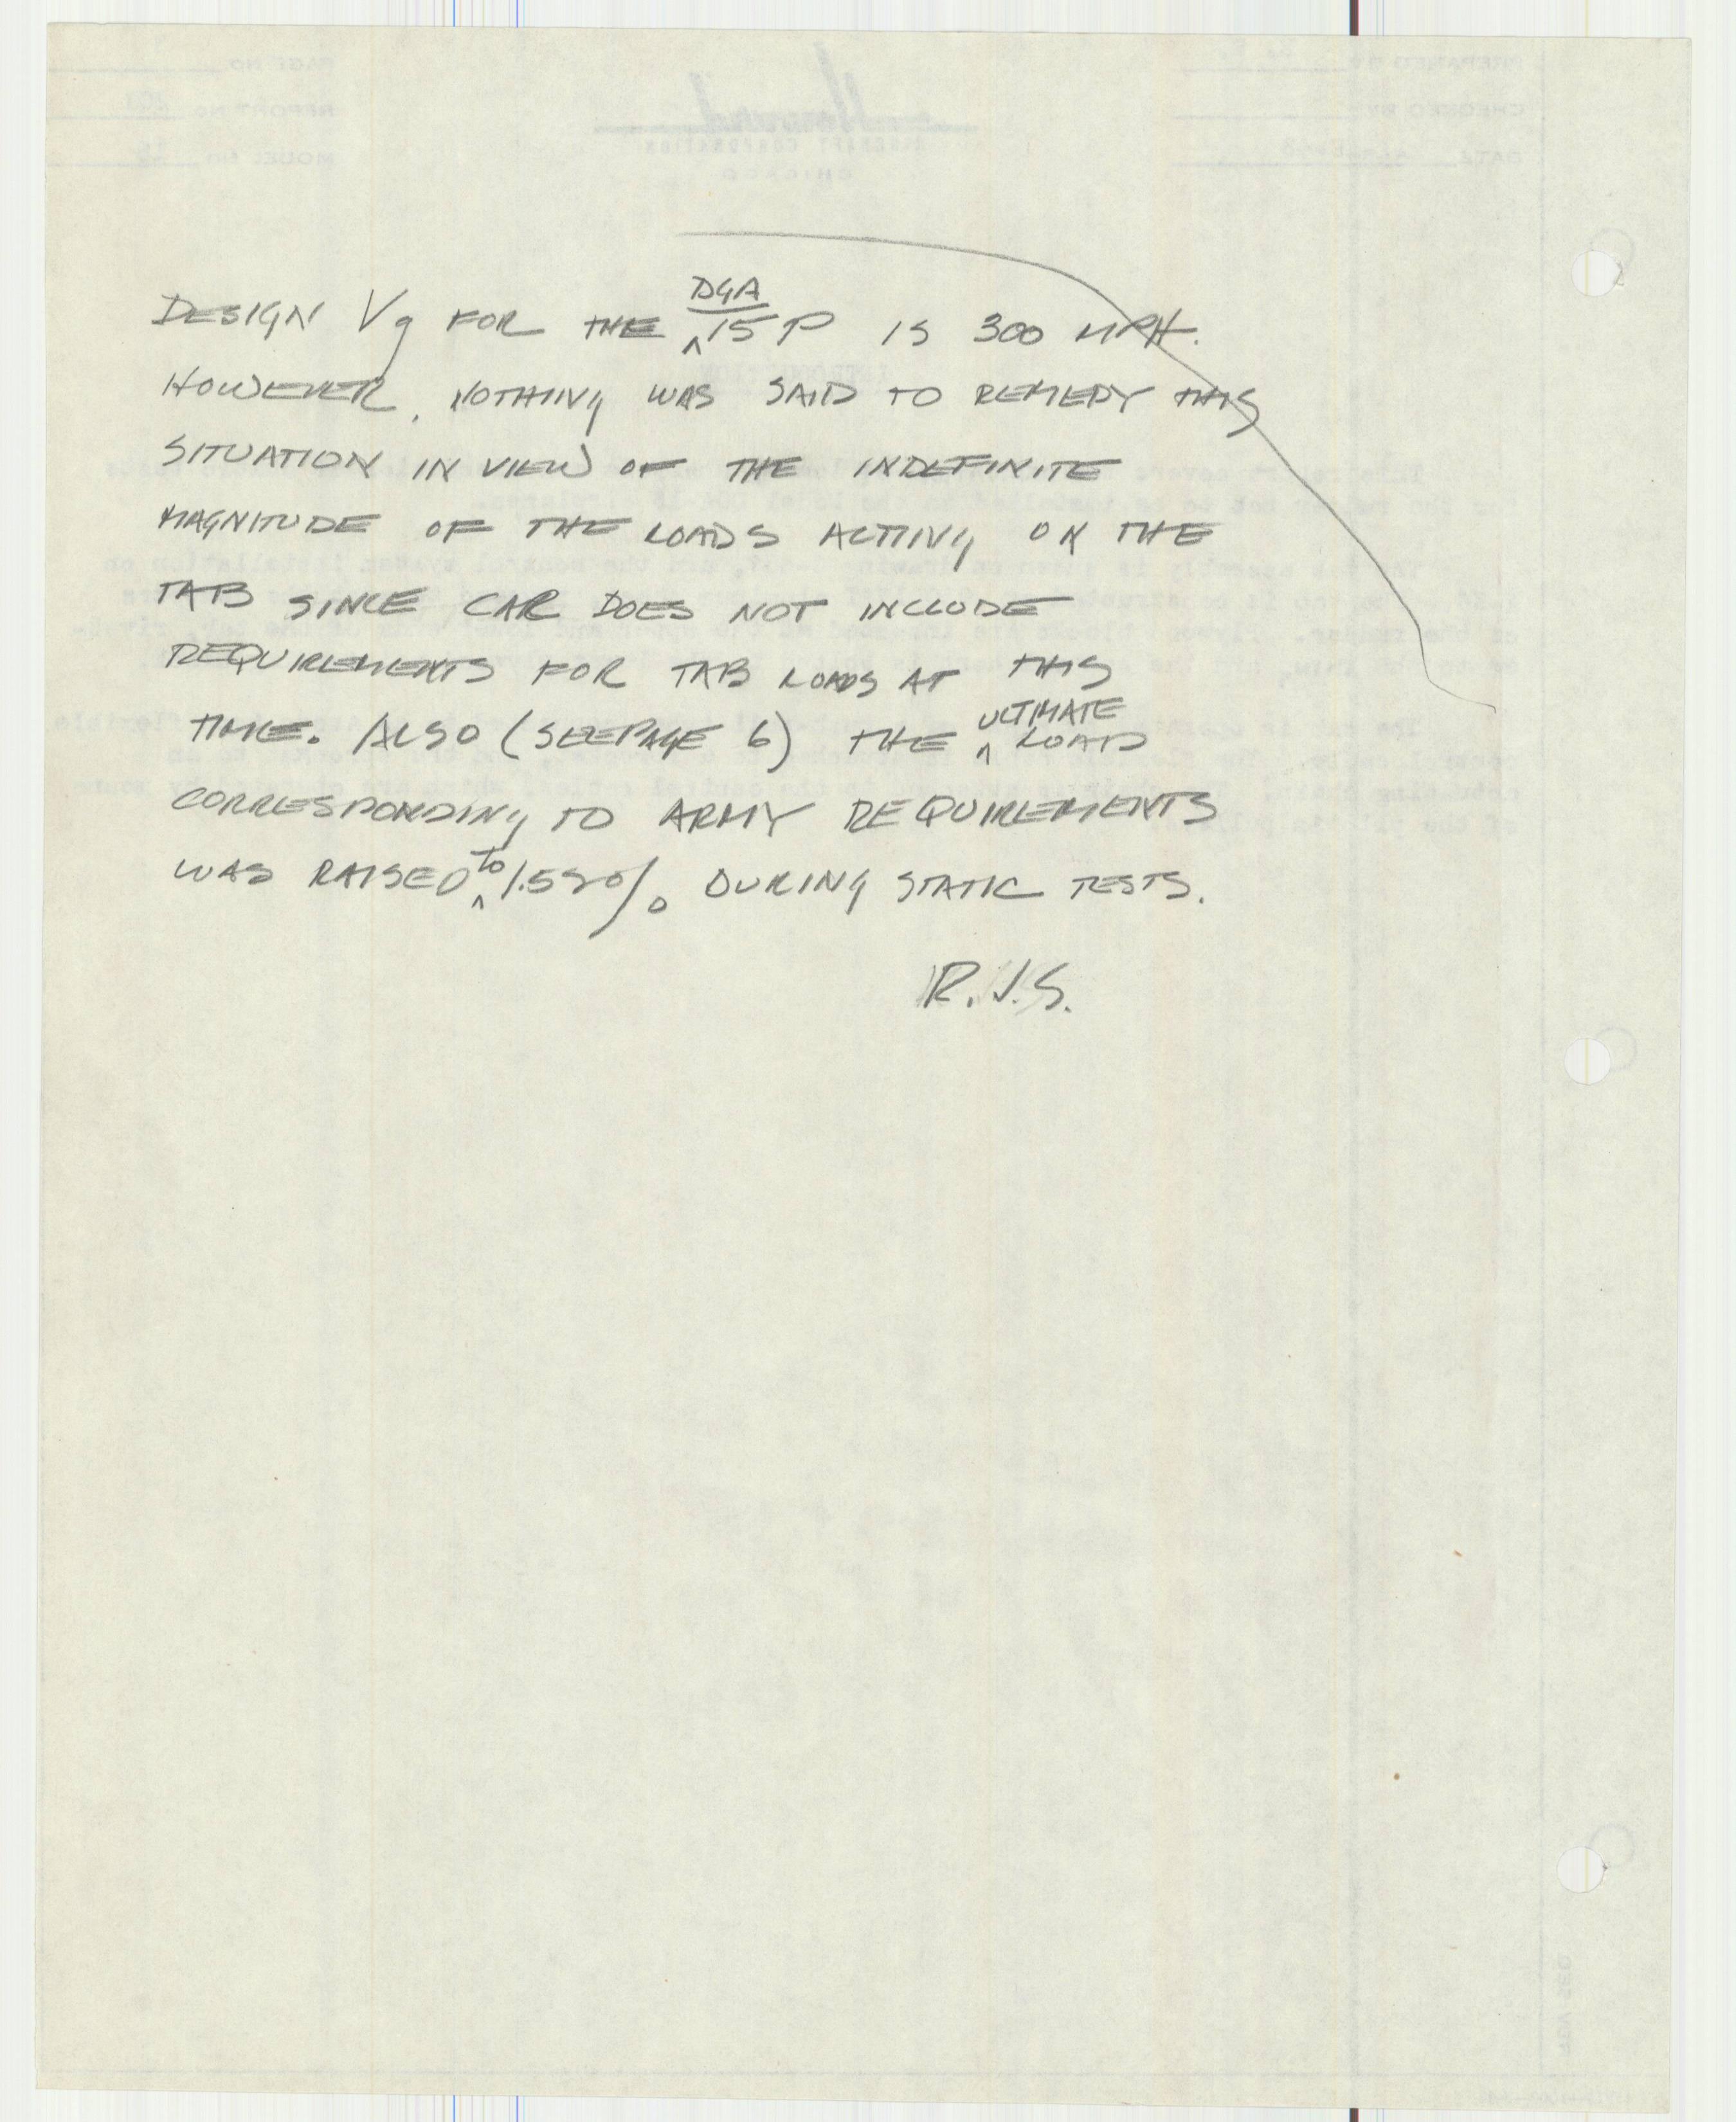 DESIGN Vg FOR THE DGA 15P IS 300 MPH.
HOWEVER, NOTHING WAS SAID TO REMEDY THIS
SITUATION IN VIEW OF THE INDEFINITE
MAGNITUDE OF THE LOADS ACTING ON THE
TAB SINCE CAR DOES NOT INCLUDE
REQUIREMENTS FOR TAB LOADS AT THIS
TIME. ALSO (SEE PAGE 6) THE ULTIMATE LOAD
CORRESPONDING TO ARMY REQUIREMENTS
WAS RAISED to % DURING STATIC TESTS.
R.J.S.